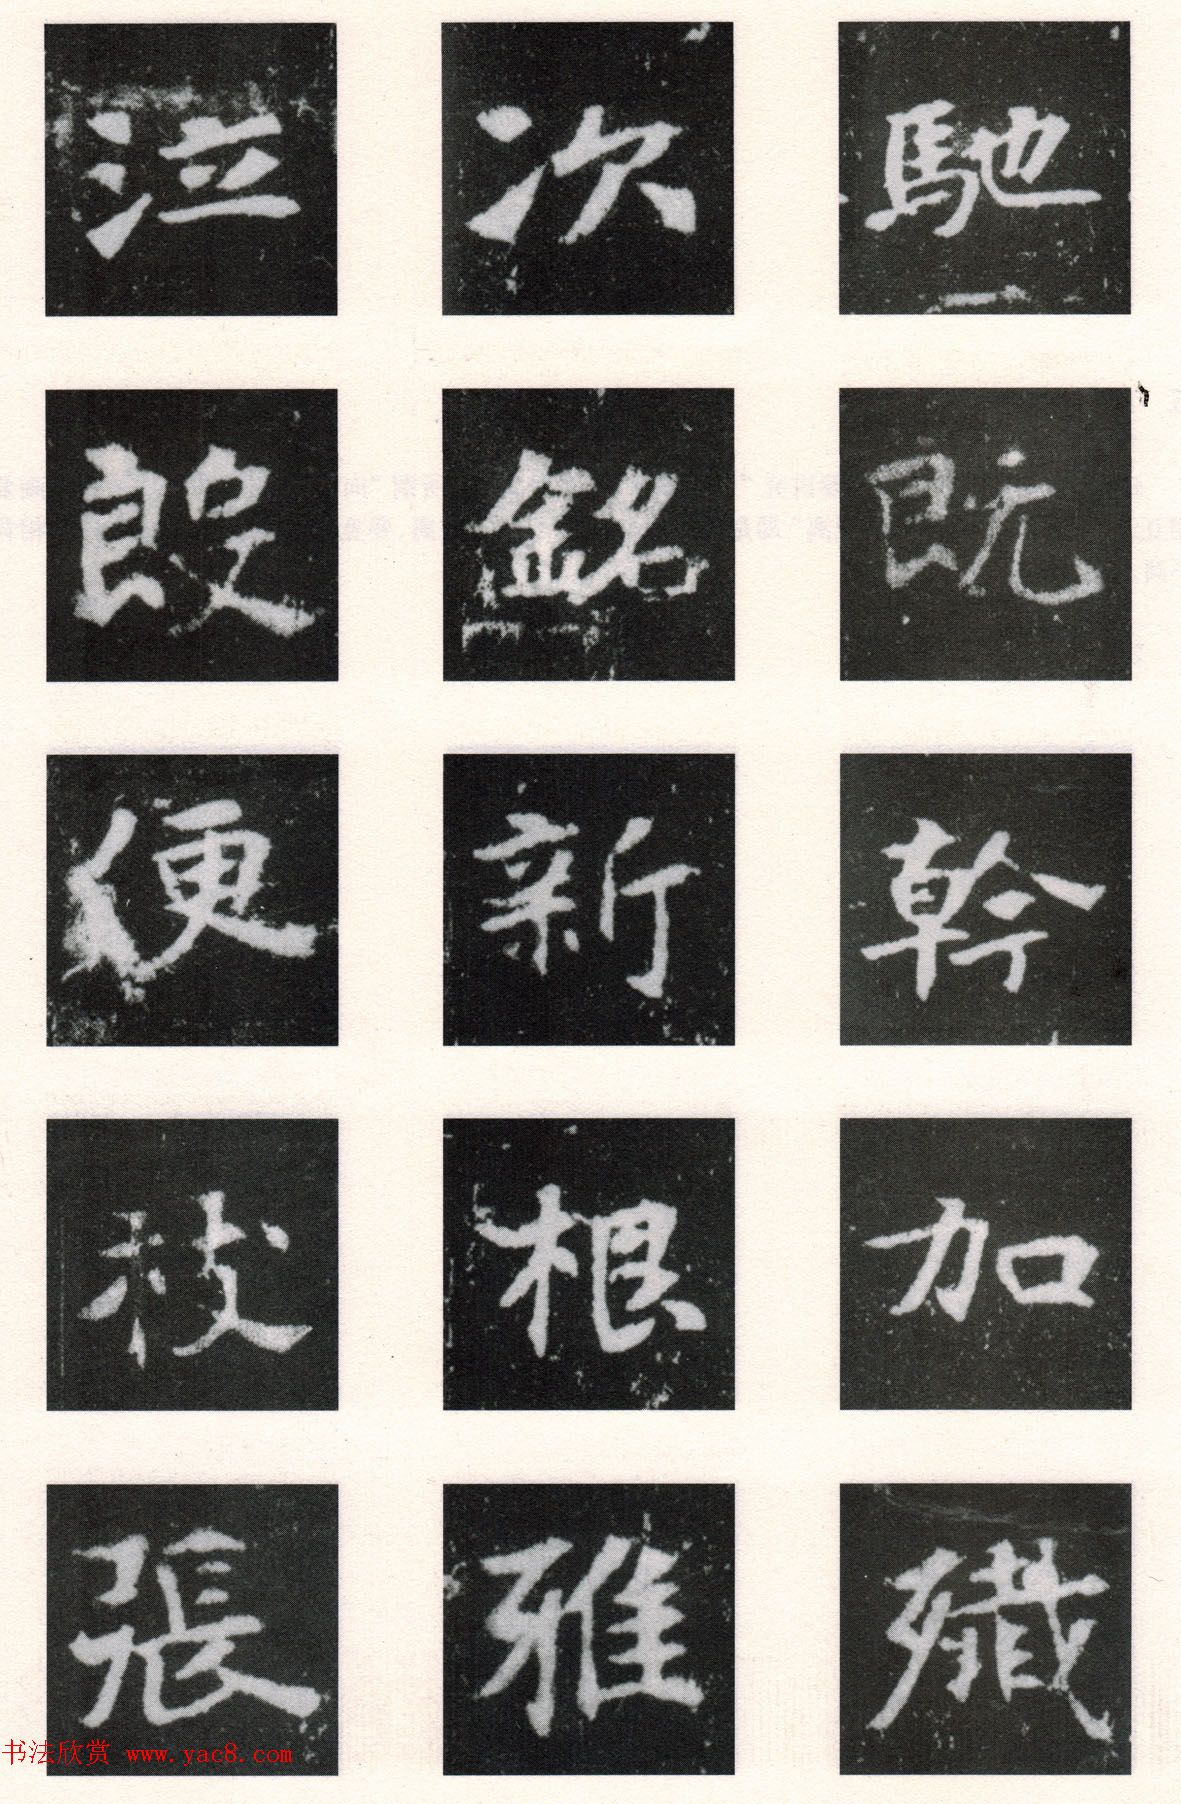 泣 次 馳
段 銘 既
便 新 幹
枝 根 加
張 雅 殲
书法欣赏 www.yac8.com